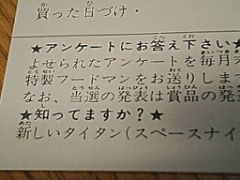 買った日づけ・
★アンケートにお答え下さい★
よせられたアンケートを毎月末
特製フードマンをお送りしま
なお、当選の発表は賞品の発
★知ってますか？★
新しいタイタン(スペースナイ